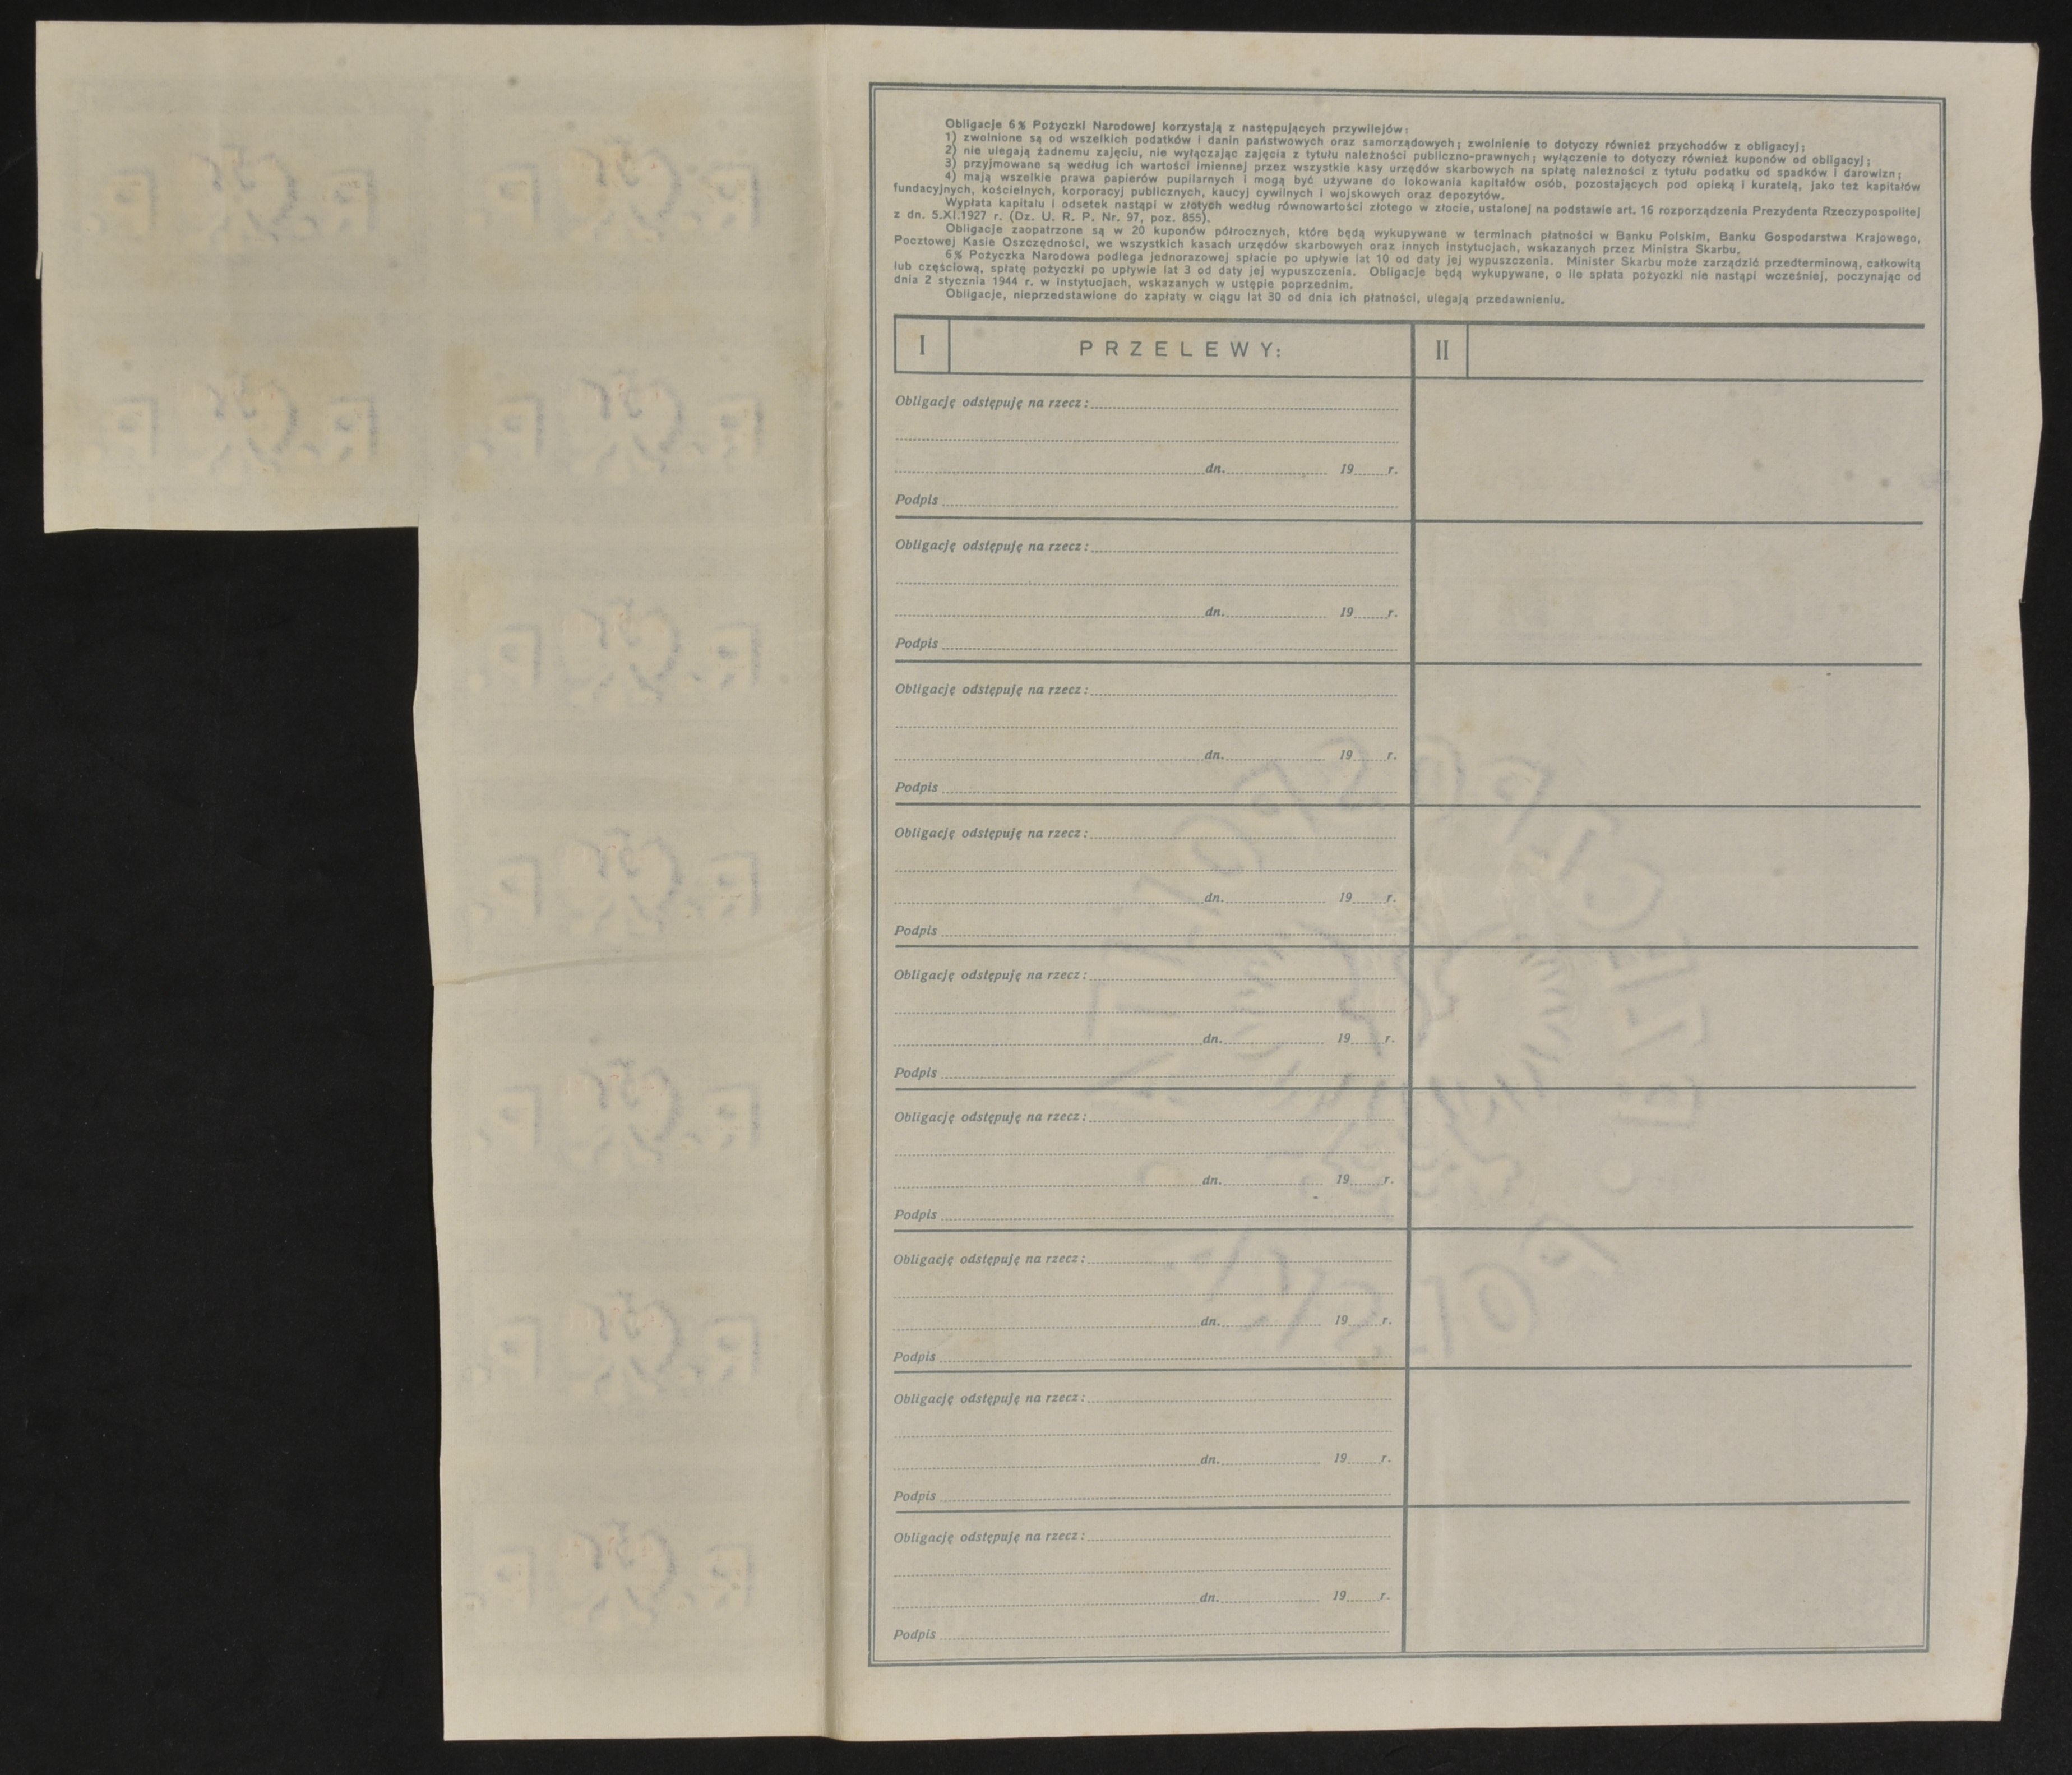 Obligacje 6% Pożyczki Narodowej korzystają z następujących przywilejów:
1) zwolnione są od wszelkich podatków i danin państwowych oraz samorządowych; zwolnienie to dotyczy również przychodów z obligacyj;
2) nie ulegają żadnemu zajęciu, nie wyłączając zajęcia z tytułu należności publiczno-prawnych; wyłączenie to dotyczy również kuponów od obligacyj;
3) przyjmowane są według ich wartości imiennej przez wszystkie kasy urzędów skarbowych na spłatę należności z tytułu podatku od spadków i darowizn;
4) mają wszelkie prawa papierów pupilarnych i mogą być używane do lokowania kapitałów osób, pozostających pod opieką i kuratelą, jako też kapitałów
fundacyjnych, kościelnych, korporacyj publicznych, kaucyj cywilnych i wojskowych oraz depozytów.
Wypłata kapitału i odsetek nastąpi w złotych według równowartości złotego w złocie, ustalonej na podstawie art. 16 rozporządzenia Prezydenta Rzeczypospolitej
z dn. 5.XI.1927 r. (Dz. U. R. P. Nr. 97, poz. 855).
Obligacje zaopatrzone są w 20 kuponów półrocznych, które będą wykupywane w terminach płatności w Banku Polskim, Banku Gospodarstwa Krajowego,
Pocztowej Kasie Oszczędności, we wszystkich kasach urzędów skarbowych oraz innych instytucjach, wskazanych przez Ministra Skarbu.
6% Pożyczka Narodowa podlega jednorazowej spłacie po upływie lat 10 od daty jej wypuszczenia. Minister Skarbu może zarządzić przedterminową, całkowitą
lub częściową, spłatę pożyczki po upływie lat 3 od daty jej wypuszczenia. Obligacje będą wykupywane, o ile spłata pożyczki nie nastąpi wcześniej, poczynając od
dnia 2 stycznia 1944 r. w instytucjach, wskazanych w ustępie poprzednim.
Obligacje, nieprzedstawione do zapłaty w ciągu lat 30 od dnia ich płatności, ulegają przedawnieniu.
I PRZELEWY: II
Obligację odstępuję na rzecz:
dn. 19 r.
Podpis
Obligację odstępuję na rzecz:
dn. 19 r.
Podpis
Obligację odstępuję na rzecz:
dn. 19 r.
Podpis
Obligację odstępuję na rzecz:
dn. 19 r.
Podpis
Obligację odstępuję na rzecz:
dn. 19 r.
Podpis
Obligację odstępuję na rzecz:
dn. 19 r.
Podpis
Obligację odstępuję na rzecz:
dn. 19 r.
Podpis
Obligację odstępuję na rzecz:
dn. 19 r.
Podpis
Obligację odstępuję na rzecz:
dn. 19 r.
Podpis